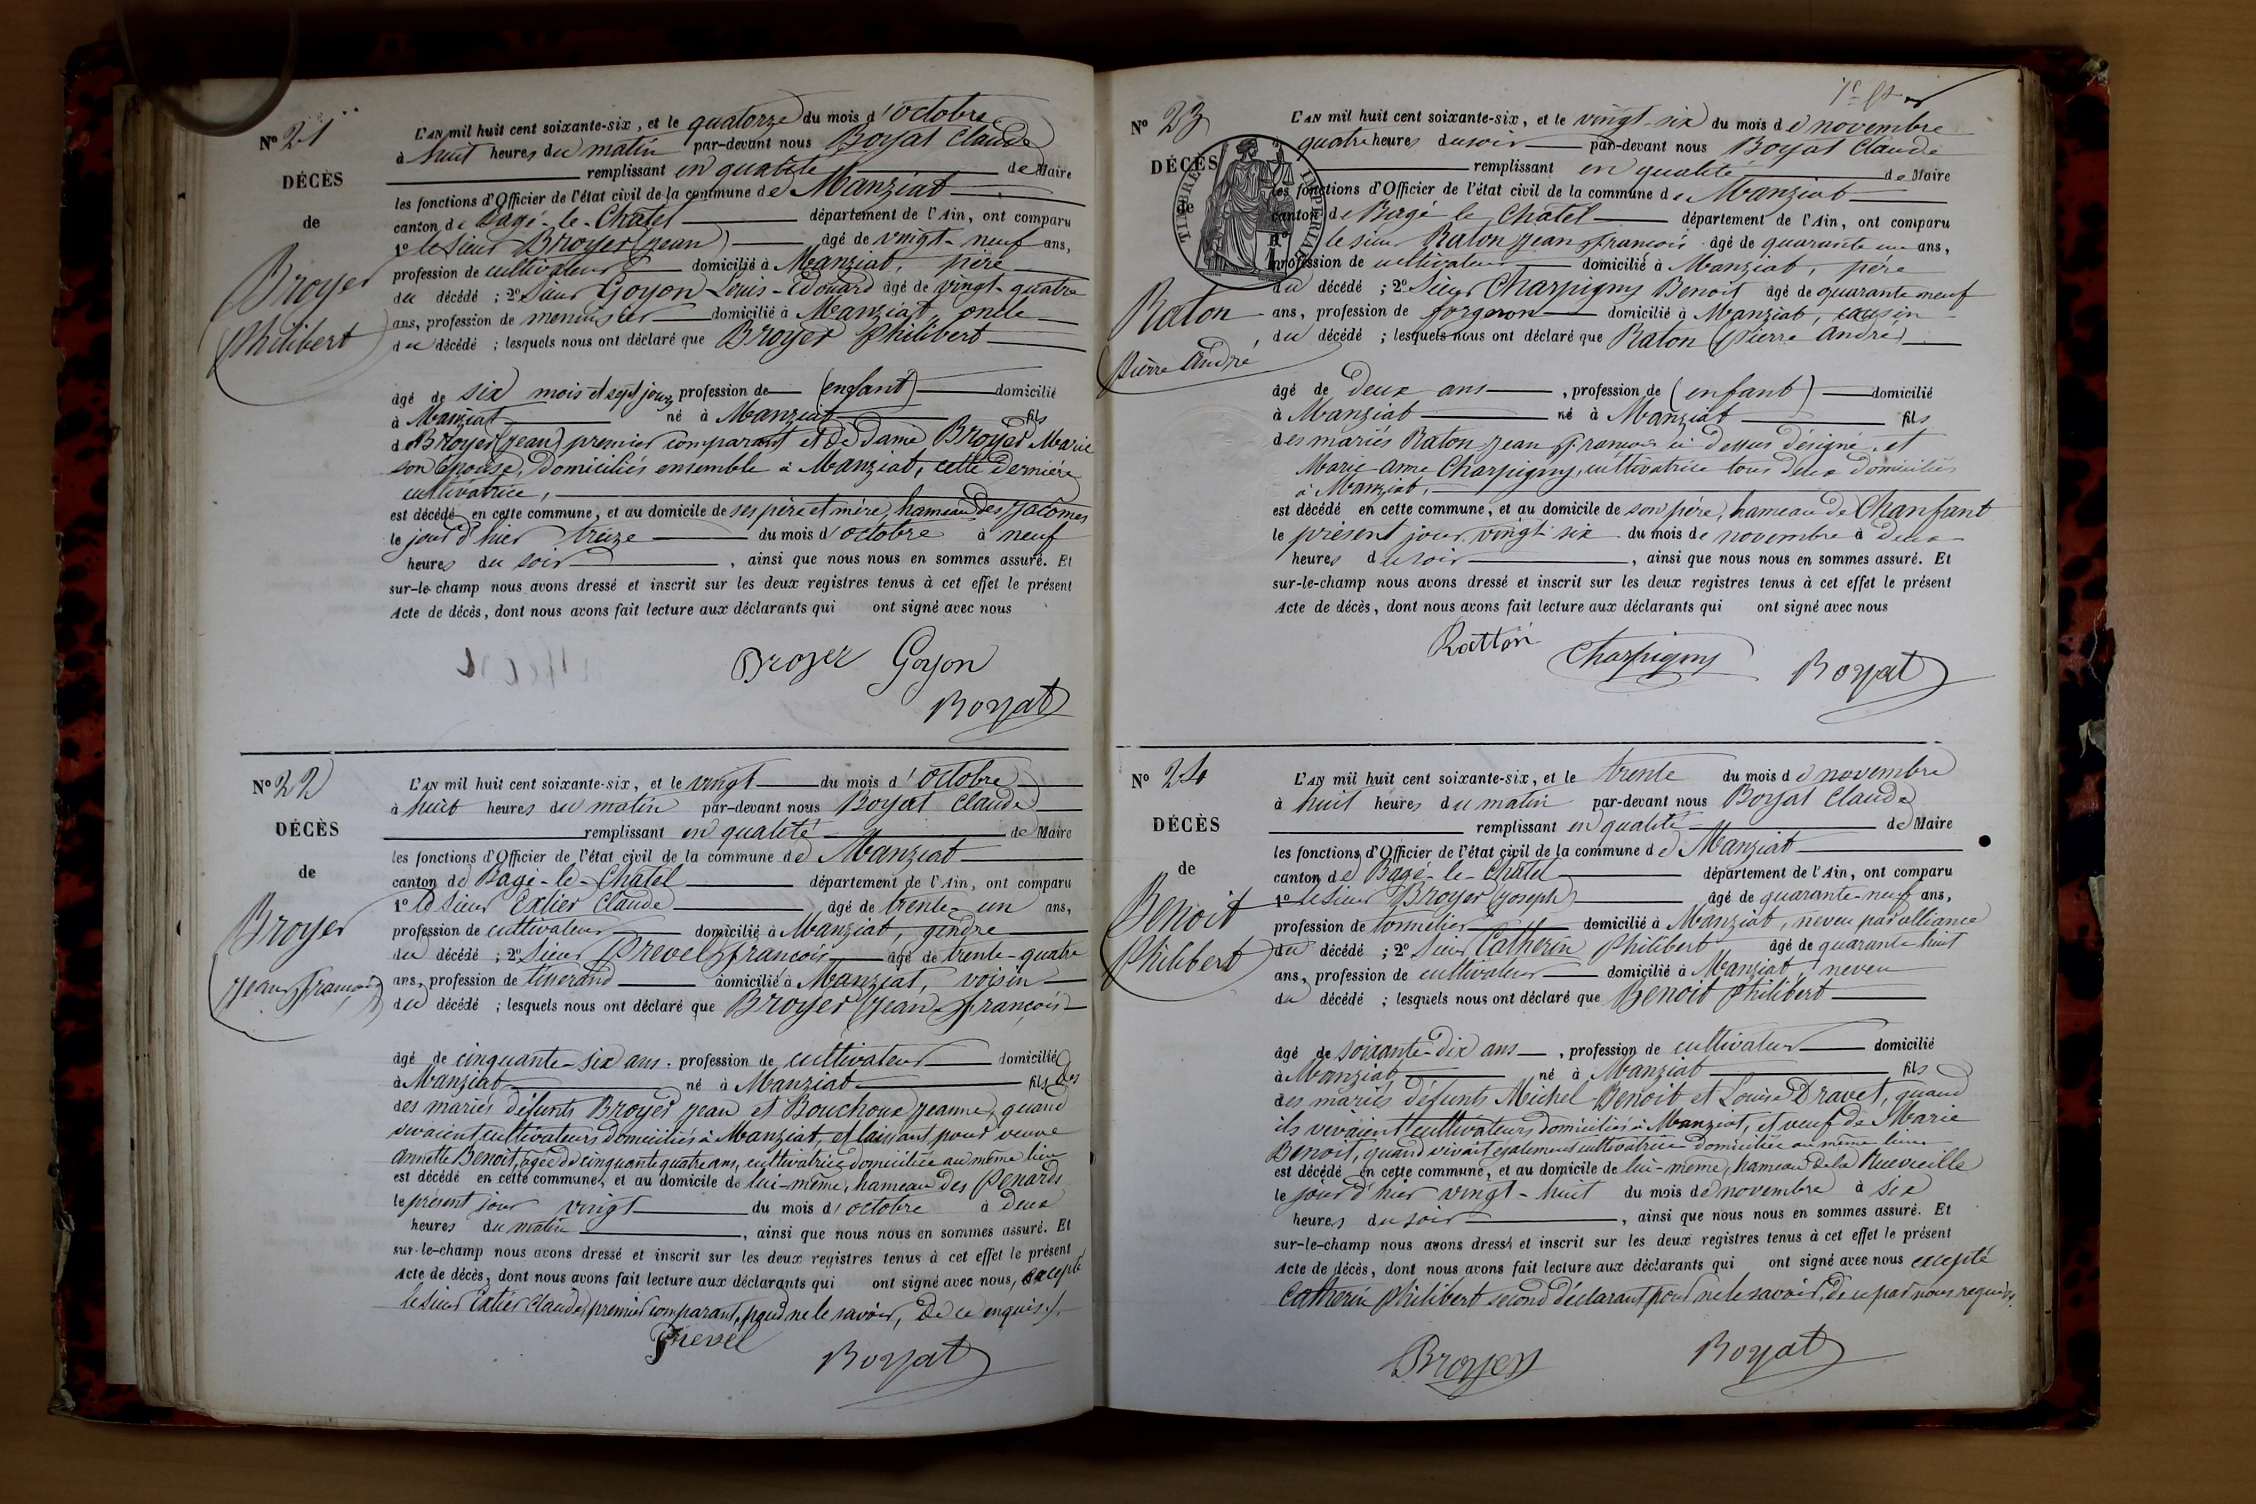 N° 21
DÉCÈS
de
Broyer
Philibert
L'AN mil huit cent soixante-six, et le quatorze du mois d'octobre
à huit heures du matin par-devant nous Boyat Claude
remplissant en qualité de Maire
les fonctions d'Officier de l'état civil de la commune de Manziat
canton de Bagé-le-Châtel département de l'Ain, ont comparu
1° le sieur Broyer (Jean) âgé de vingt-neuf ans,
profession de cultivateur domicilié à Manziat, père
du décédé ; 2° sieur Goyon Louis-Edouard âgé de vingt-quatre
ans, profession de menuisier domicilié à Manziat, oncle
du décédé ; lesquels nous ont déclaré que Broyer Philibert
âgé de six mois et sept jours, profession de (enfant) domicilié
à Manziat né à Manziat fils
de Broyer (Jean) premier comparant et de dame Broyer Marie
son épouse, domiciliés ensemble à Manziat, cette dernière
cultivatrice,
est décédé en cette commune, et au domicile de ses père et mère, hameau des Jacômes
le jour d'hier treize du mois d'octobre à neuf
heures du soir, ainsi que nous nous en sommes assuré. Et
sur-le-champ nous avons dressé et inscrit sur les deux registres tenus à cet effet le présent
Acte de décès, dont nous avons fait lecture aux déclarants qui ont signé avec nous
Broyer Goyon
Boyat
N° 22
DÉCÈS
de
Broyer
Jean François
L'AN mil huit cent soixante-six, et le vingt du mois d'octobre
à huit heures du matin par-devant nous Boyat Claude
remplissant en qualité de Maire
les fonctions d'Officier de l'état civil de la commune de Manziat
canton de Bagé-le-Châtel département de l'Ain, ont comparu
1° le sieur Extier Claude âgé de trente-un ans,
profession de cultivateur domicilié à Manziat, gendre
du décédé ; 2° sieur Prevel François âgé de trente-quatre
ans, profession de tisserand domicilié à Manziat, voisin
du décédé ; lesquels nous ont déclaré que Broyer (Jean-François
âgé de cinquante-six ans. profession de cultivateur domicilié
à Manziat né à Manziat fils des
des mariés défunts Broyer Jean et Bouchoux Jeanne, quand
vivaient cultivateurs domiciliés à Manziat, et laissant pour veuve
Annette Benoit, âgée de cinquante quatre ans, cultivatrice domiciliée au même lieu
est décédé en cette commune, et au domicile de lui-même, hameau des Penards
le présent jour vingt du mois d'octobre à deux
heures du matin, ainsi que nous nous en sommes assuré. Et
sur-le-champ nous avons dressé et inscrit sur les deux registres tenus à cet effet le présent
Acte de décès, dont nous avons fait lecture aux déclarants qui ont signé avec nous, excepté
le sieur Extier Claude, premier comparant, pour ne le savoir, de ce enquis.
Prevel
Boyat
N° 23
DÉCÈS
de
Raton
Pierre André
TIMBRE IMPERIAL
L'AN mil huit cent soixante-six, et le vingt-six du mois de novembre
quatre heures du soir par-devant nous Boyat Claude
remplissant en qualité de Maire
les fonctions d'Officier de l'état civil de la commune de Manziat
canton de Bagé le Châtel département de l'Ain, ont comparu
1° le sieur Raton Jean François âgé de quarante un ans,
profession de cultivateur domicilié à Manziat, père
du décédé ; 2° sieur Charpigny Benoit âgé de quarante neuf
ans, profession de forgeron domicilié à Manziat, cousin
du décédé ; lesquels nous ont déclaré que Raton (Pierre André)
âgé de deux ans, profession de (enfant) domicilié
à Manziat né à Manziat fils
des mariés Raton Jean François ci dessus désigné, et
Marie-Anne Charpigny, cultivatrice tous deux domiciliés
à Manziat,
est décédé en cette commune, et au domicile de son père, hameau de Chanfant
le présent jour vingt-six du mois de novembre à deux
heures du soir, ainsi que nous nous en sommes assuré. Et
sur-le-champ nous avons dressé et inscrit sur les deux registres tenus à cet effet le présent
Acte de décès, dont nous avons fait lecture aux déclarants qui ont signé avec nous
Ratton Charpigny Boyat
N° 24
DÉCÈS
de
Benoit
Philibert
L'AN mil huit cent soixante-six, et le trente du mois de novembre
à huit heures du matin par-devant nous Boyat Claude
remplissant en qualité de Maire
les fonctions d'Officier de l'état civil de la commune de Manziat
canton de Bagé-le-Châtel département de l'Ain, ont comparu
1° le sieur Broyer (Joseph) âgé de quarante-neuf ans,
profession de tonnelier domicilié à Manziat, neveu par alliance
du décédé ; 2° sieur Catherin Philibert âgé de quarante huit
ans, profession de cultivateur domicilié à Manziat, neveu
du décédé ; lesquels nous ont déclaré que Benoit Philibert
âgé de soixante-dix ans, profession de cultivateur domicilié
à Manziat né à Manziat fils
des mariés défunts Michel Benoit et Louise Dravet, quand
ils vivaient cultivateurs domiciliés à Manziat, et veuf de Marie
Benoit, quand vivait également cultivatrice domiciliée au même lieu
est décédé en cette commune, et au domicile de lui-même, hameau de la Rue vieille
le jour d'hier vingt-huit du mois de novembre à six
heures du soir, ainsi que nous nous en sommes assuré. Et
sur-le-champ nous avons dressé et inscrit sur les deux registres tenus à cet effet le présent
Acte de décès, dont nous avons fait lecture aux déclarants qui ont signé avec nous excepté
Catherin Philibert second déclarant pour ne le savoir, de ce par nous requis.
Broyer Boyat